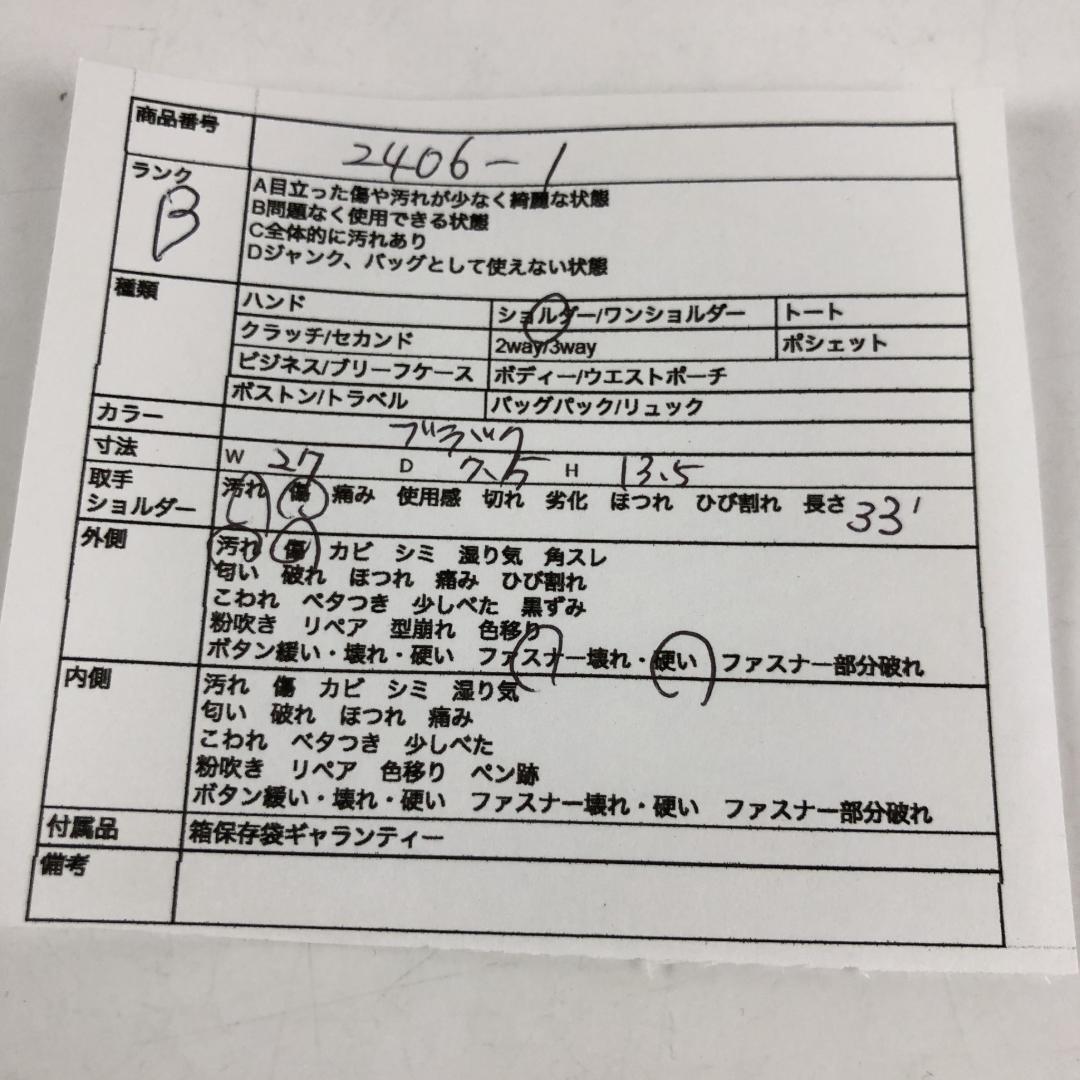 商品番号
2406-1
ランク
B
A目立った傷や汚れが少なく綺麗な状態
B問題なく使用できる状態
C全体的に汚れあり
Dジャンク、バッグとして使えない状態
種類
ハンド ショルダー/ワンショルダー トート
クラッチ/セカンド 2way/3way ポシェット
ビジネス/ブリーフケース ボディー/ウエストポーチ
ボストン/トラベル バッグパック/リュック
カラー ブラック
寸法 W 27 D 7.5 H 13.5
取手
ショルダー
汚れ 傷 痛み 使用感 切れ 劣化 ほつれ ひび割れ 長さ 33
外側
汚れ 傷 カビ シミ 湿り気 角スレ
匂い 破れ ほつれ 痛み ひび割れ
こわれ ベタつき 少しべた 黒ずみ
粉吹き リペア 型崩れ 色移り
ボタン緩い・壊れ・硬い ファスナー壊れ・硬い ファスナー部分破れ
内側
汚れ 傷 カビ シミ 湿り気
匂い 破れ ほつれ 痛み
こわれ ベタつき 少しべた
粉吹き リペア 色移り ペン跡
ボタン緩い・壊れ・硬い ファスナー壊れ・硬い ファスナー部分破れ
付属品 箱保存袋ギャランティー
備考